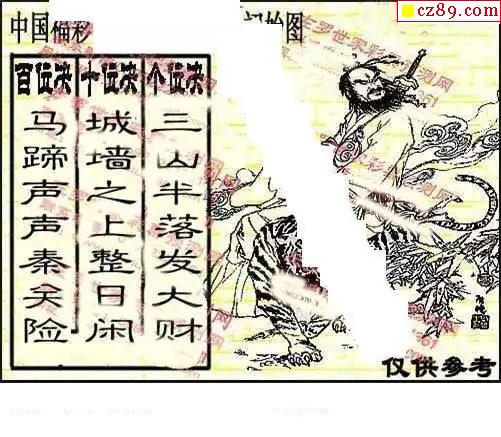 cz89.com
中国福彩
图
百位决 十位决 个位决
马蹄声声秦关险
城墙之上整日闲
三山半落发大财
仅供参考